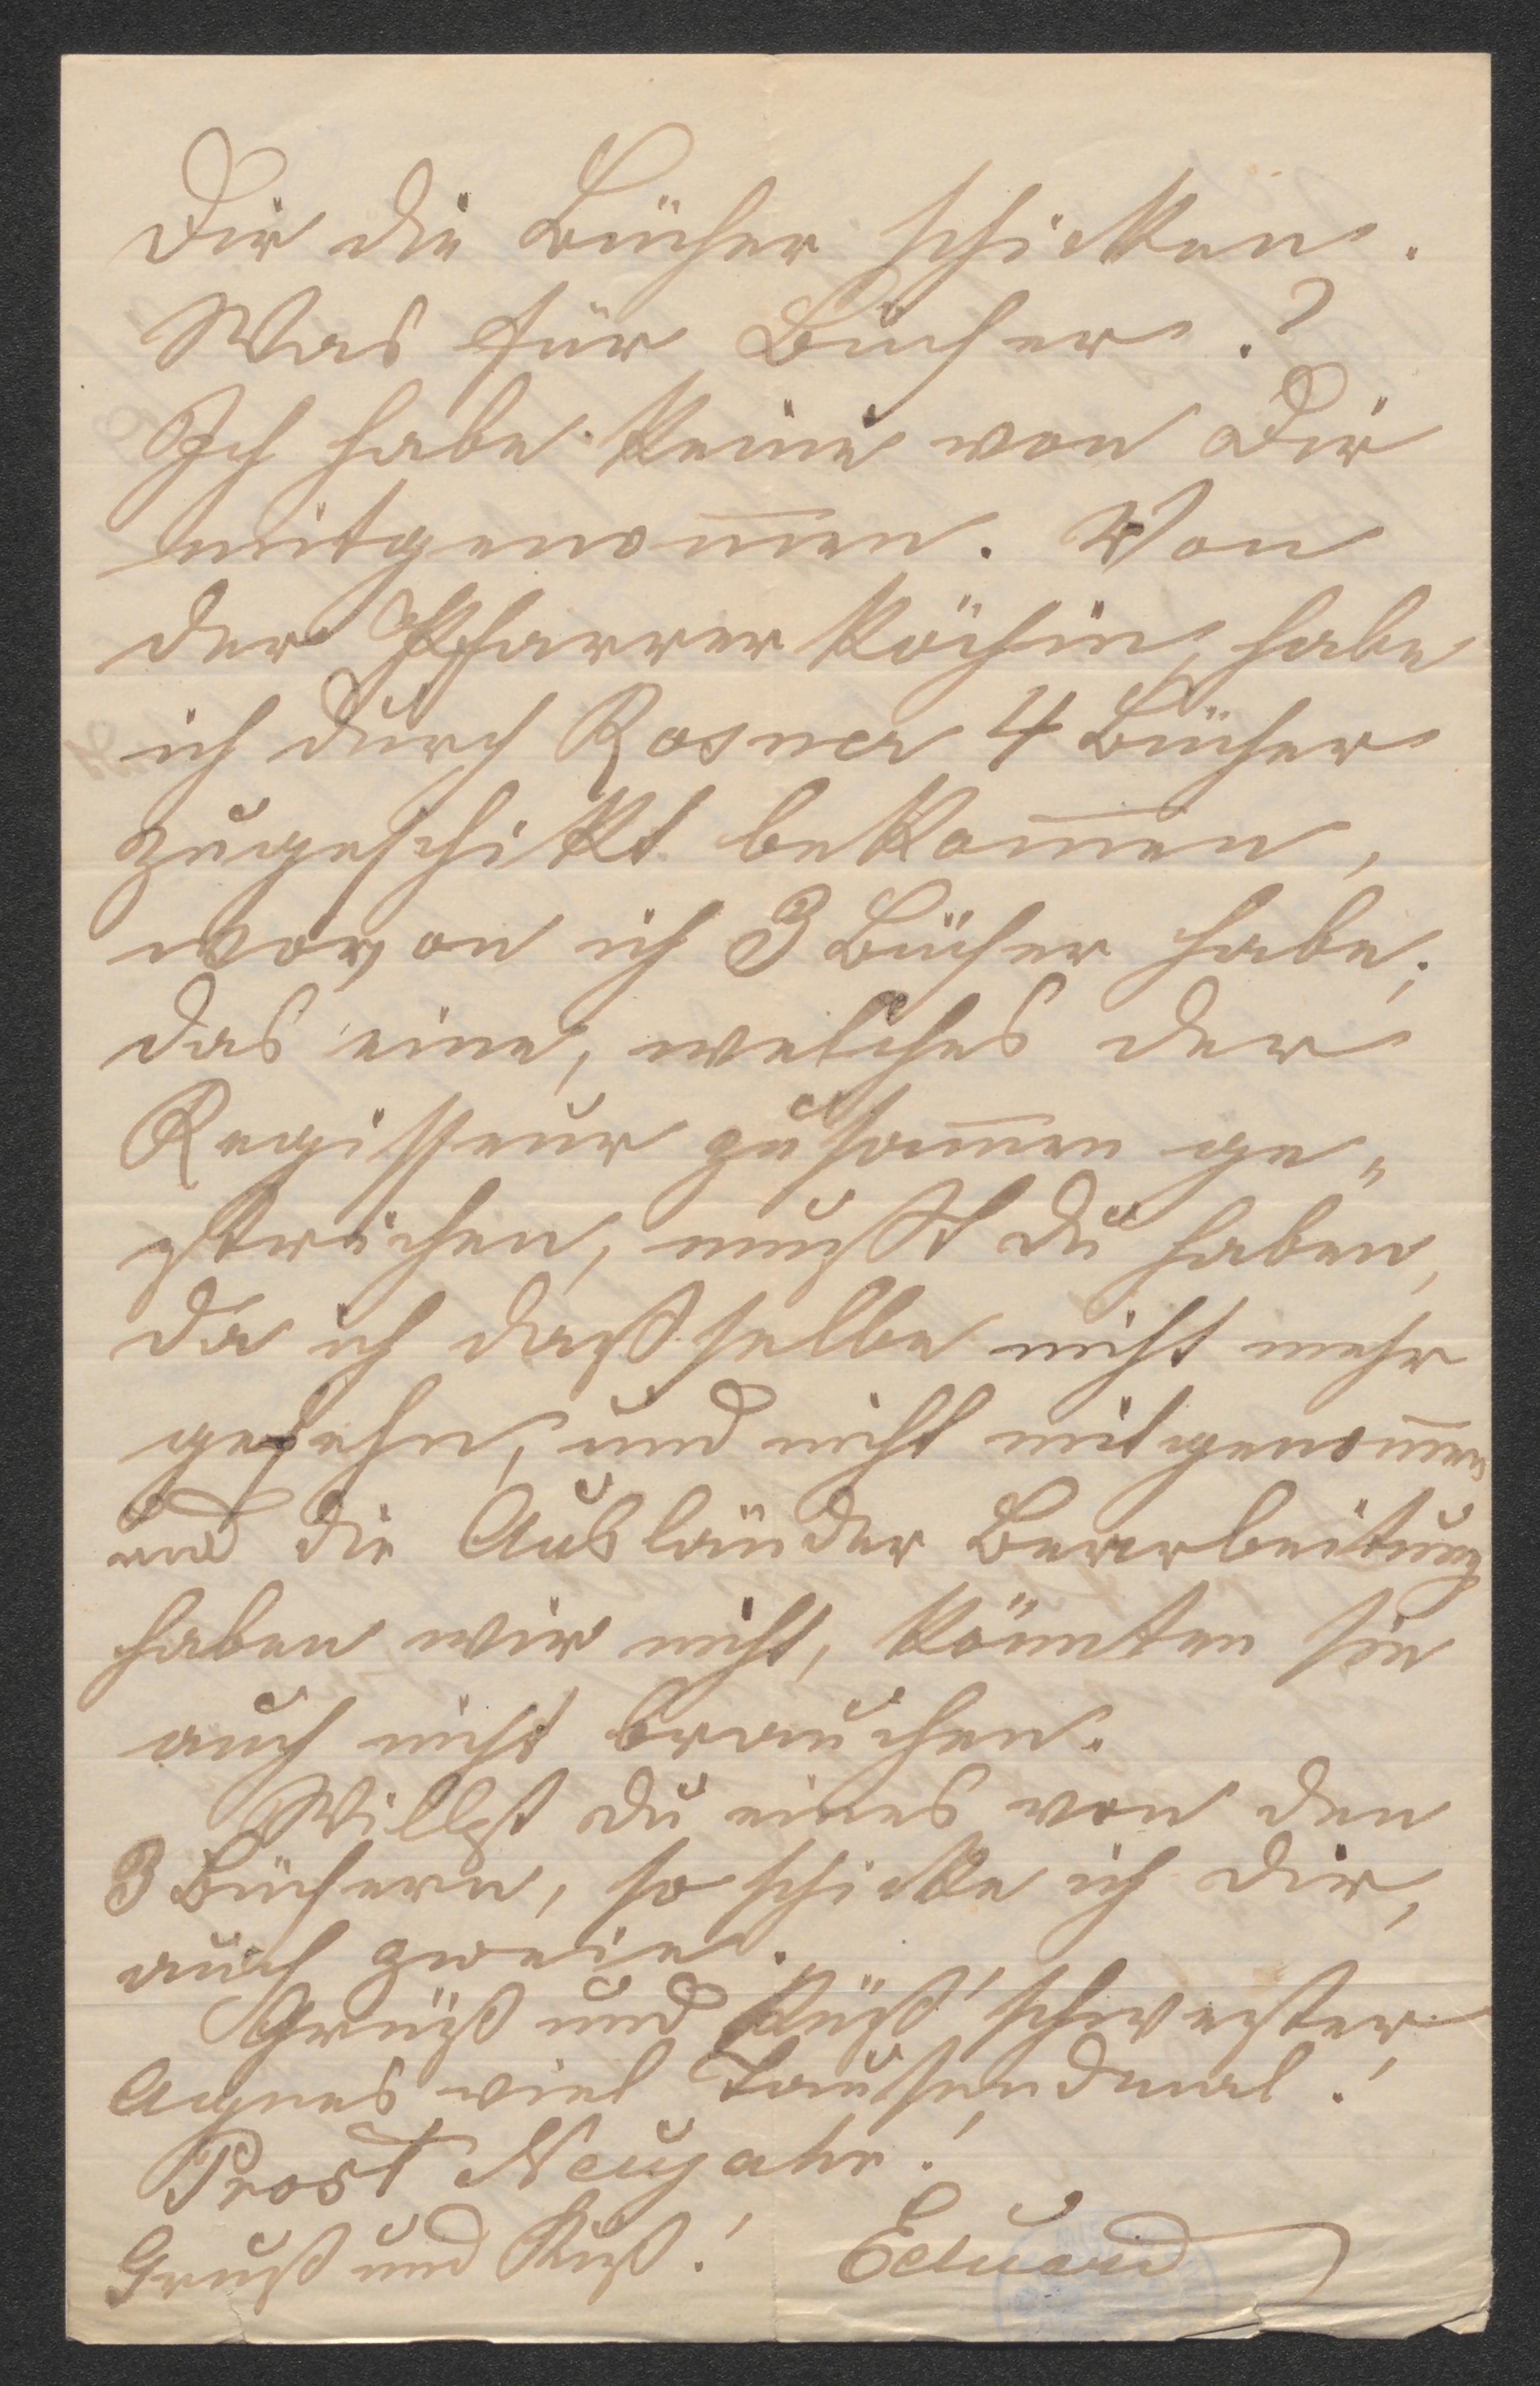 Dir die Bücher schicken.
Was für Bücher?
Ich habe keine von Dir
mitgenom̅en. Von
der Pfarrerköchin, habe
ich durch Rosner 4 Bücher
zugeschikt bekom̅en,
wovon ich 3 Bücher habe;
das eine, welches der
Regisseur zusam̅en ge„
strichen, mußt Du haben,
da ich daßselbe nicht mehr
gesehn, und nicht mitgenom̅en
und die Ausländer Bearbeitung
haben wir nicht, könnten sie
auch nicht brauchen.
Willst Du eines von den
3 Büchern, so schicke ich Dir,
auch zweie.
Grüß und küß' schwester
Agnes viel Tausendmal!
Prost Neujahr!
Gruß und Kuß! Eduard